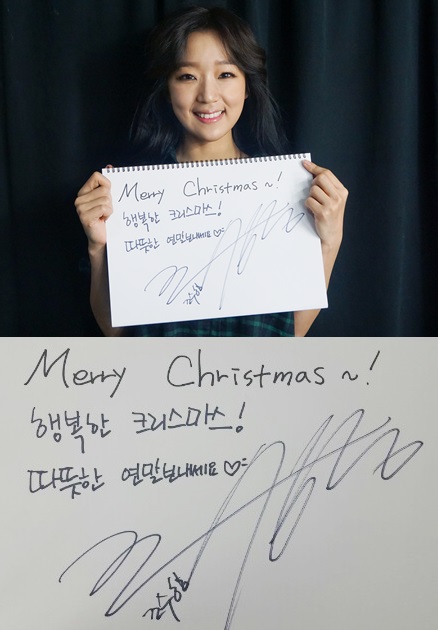 Merry Christmas ~!
행복한 크리스마스!
따뜻한 연말보내세요♡
Merry Christmas ~!
행복한 크리스마스!
따뜻한 연말보내세요♡